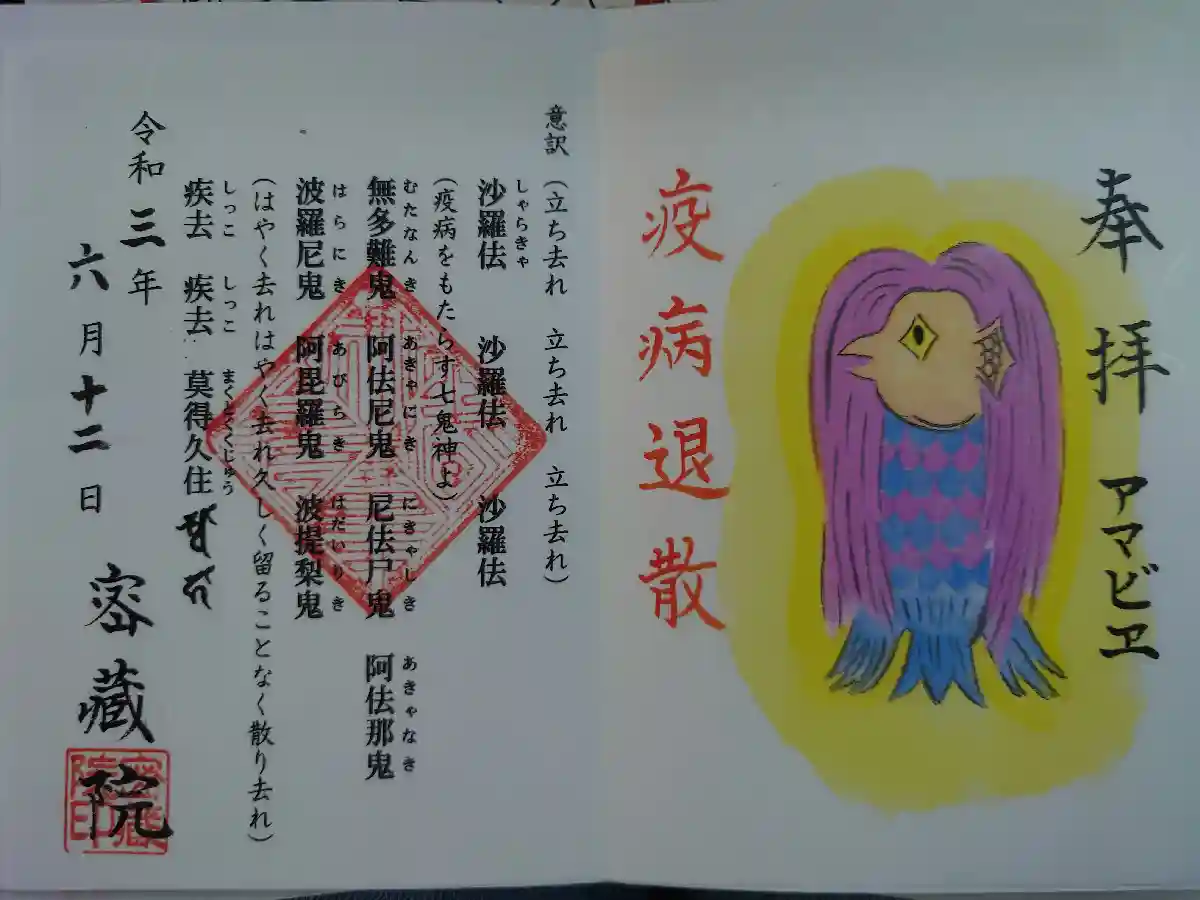 奉拝 アマビヱ
疫病退散
意訳 (立ち去れ 立ち去れ 立ち去れ)
しゃらきゃ
沙羅佉 沙羅佉 沙羅佉
(疫病をもたらす七鬼神よ)
むたなんき あきゃにき にきゃしき あきゃなき
無多難鬼 阿佉尼鬼 尼佉尸鬼 阿佉那鬼
はらにき あびらき はだいりき
波羅尼鬼 阿毘羅鬼 波提梨鬼
(はやく去れはやく去れ久しく留ることなく散り去れ)
しっこ しっこ まくとくくじゅう
疾去 疾去 莫得久住
令和三年
六月十二日
密蔵院
密蔵院印